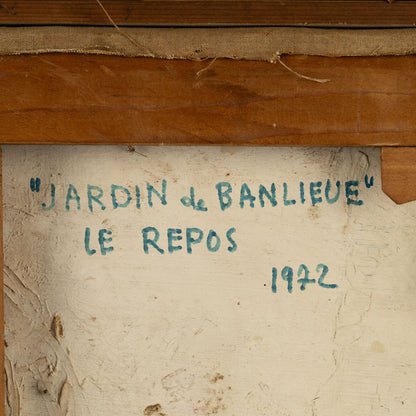 "JARDIN de BANLIEUE"
LE REPOS
1972